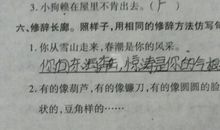 3.小狗赖在屋里不肯出去。(
六、修辞长廊。照样子,用相同的修辞方法仿写句
1.你从雪山走来,春潮是你的风采。
你向东海奔去,惊涛是你的气概
2.有的像葫芦,有的像镰刀,有的像圆圆的脸
状的,豆角样的……